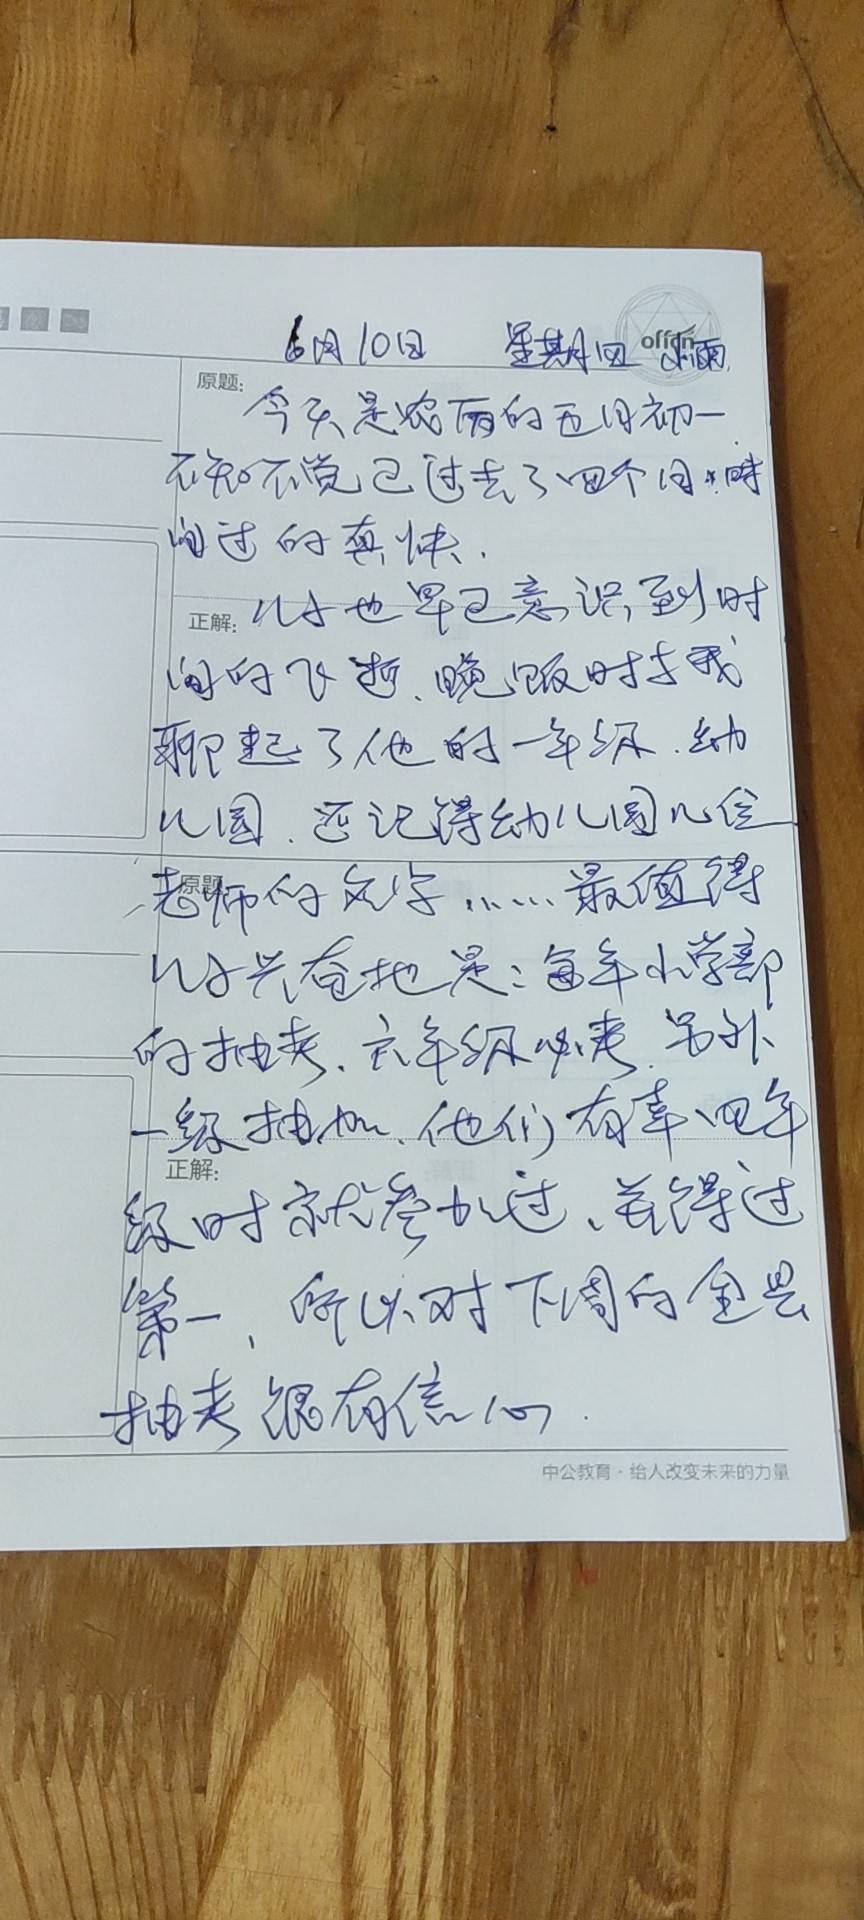 6月10日 星期四 小雨
offcn
原题:
今天是农历的五月初一
不知不觉已过去了四个月,时
间过的真快.
正解:
儿子也早已意识到时
间的飞逝、晚饭时与我
聊起了他的一年级、幼
儿园、还记得幼儿园几位
原题:
老师的名字……最值得
儿子兴奋地是:每年小学部
的抽考、六年级必考、另外
一级抽加、他们有幸四年
正解:
级时就参加过、并得过
第一,所以对下周的全县
抽考很有信心.
中公教育·给人改变未来的力量